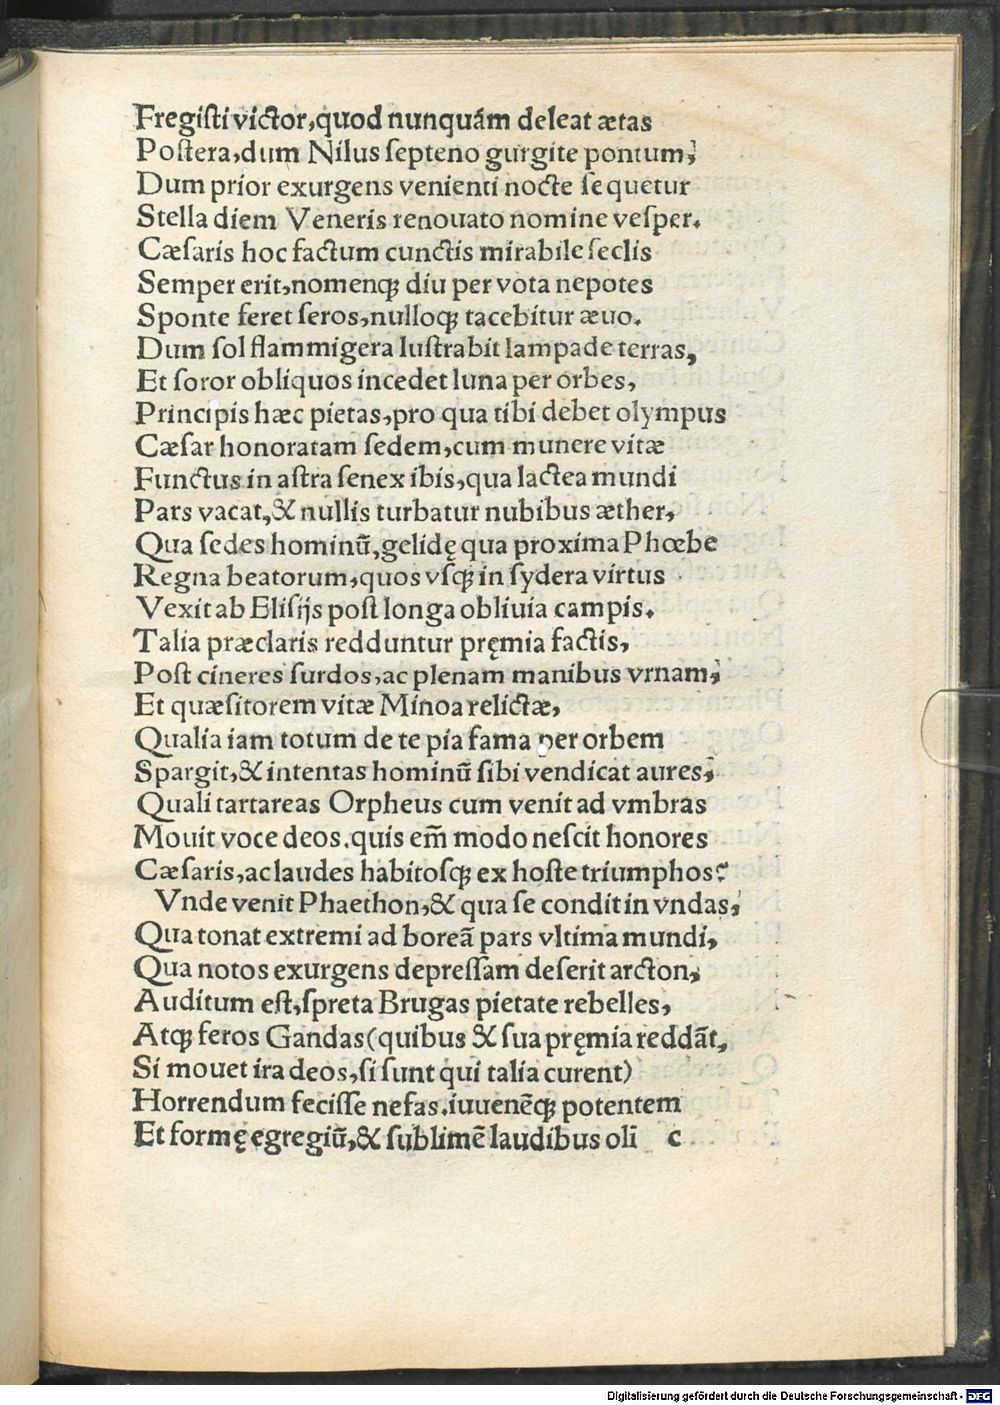 Fregiſti victor,quod nunquám deleat ætas
Poſtera,dum Nilus ſepteno gurgite pontum,
Dum prior exurgens venienti nocte ſequetur
Stella diem Veneris renouato nomine veſper.
Cæſaris hoc factum cunctis mirabile ſeclis
Semper erit,nomenqꝫ diu per vota nepotes
Sponte feret ſeros,nulloqꝫ tacebitur æuo.
Dum ſol flammigera luſtrabit lampade terras,
Et ſoror obliquos incedet luna per orbes,
Principis hæc pietas,pro qua tibi debet olympus
Cæſar honoratam ſedem,cum munere vitæ
Functus in aſtra ſenex ibis,qua lactea mundi
Pars vacat,& nullis turbatur nubibus æther,
Qua ſedes hominū,gelidę qua proxima Phœbe
Regna beatorum,quos vſqꝫ in ſydera virtus
Vexit ab Eliſijs poſt longa obliuia campis.
Talia præclaris redduntur pręmia factis,
Poſt cineres ſurdos,ac plenam manibus vrnam,
Et quæſitorem vitæ Minoa relictæ,
Qualia iam totum de te pia fama per orbem
Spargit,& intentas hominū ſibi vendicat aures,
Quali tartareas Orpheus cum venit ad vmbras
Mouit voce deos.quis em̄ modo neſcit honores
Cæſaris,ac laudes habitoſqꝫ ex hoſte triumphos?
Vnde venit Phaethon,& qua ſe condit in vndas,
Qua tonat extremi ad boreā pars vltima mundi,
Qua notos exurgens depreſſam deſerit arcton,
Auditum eſt,ſpreta Brugas pietate rebelles,
Atqꝫ feros Gandas(quibus & ſua pręmia reddāt,
Si mouet ira deos,ſi ſunt qui talia curent)
Horrendum feciſſe nefas.iuuenēqꝫ potentem
Et formę egregiū,& ſublimē laudibus oli c
Digitalisierung gefördert durch die Deutsche Forschungsgemeinschaft - DFG